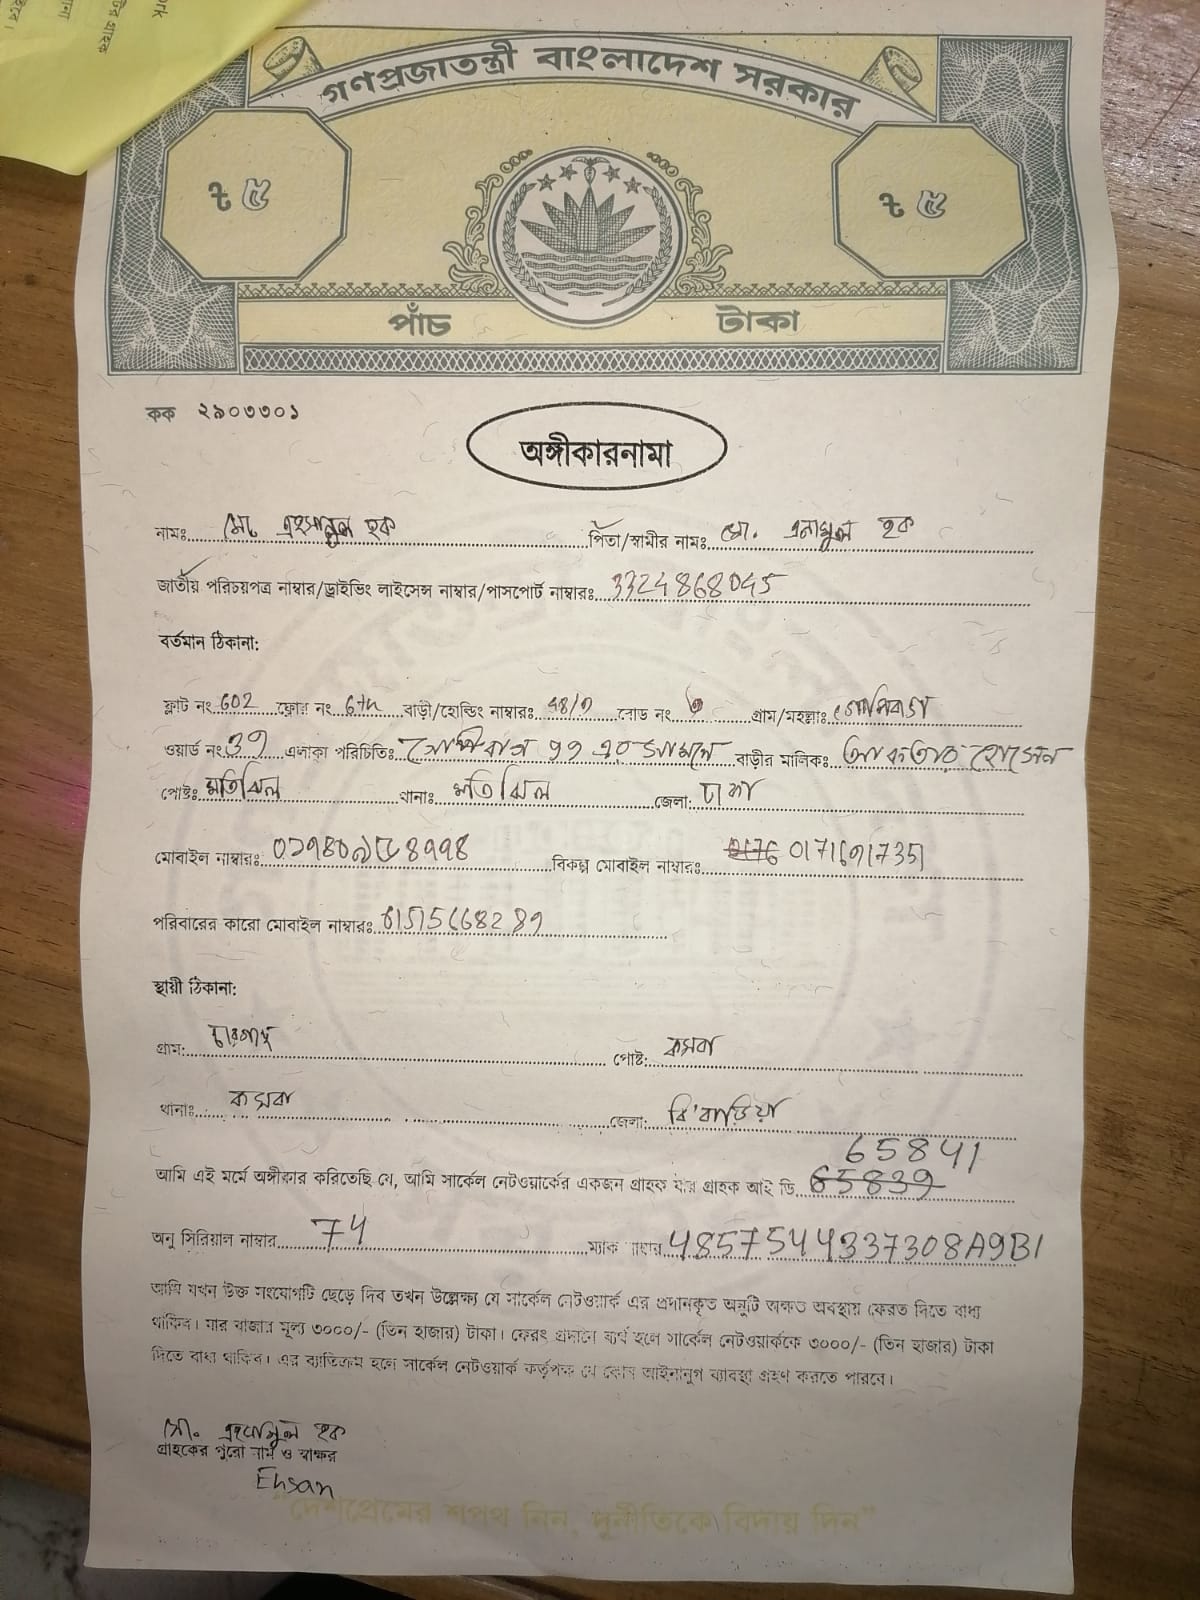 গণপ্রজাতন্ত্রী বাংলাদেশ সরকার
৳ ৫ ৳ ৫
পাঁচ টাকা
কক ২৯০৩৩০১
অঙ্গীকারনামা
নামঃ মোঃ এহসানুল হক পিতা/স্বামীর নামঃ মো. এনামুল হক
জাতীয় পরিচয়পত্র নাম্বার/ড্রাইভিং লাইসেন্স নাম্বার/পাসপোর্ট নাম্বারঃ 3324868045
বর্তমান ঠিকানা:
ফ্লাট নং 602 ফ্লোর নং 6th বাড়ী/হোল্ডিং নাম্বারঃ রোড নং গ্রাম/মহল্লাঃ গোপিবাগ
ওয়ার্ড নং 39 এলাকা পরিচিতিঃ গোপিবাগ সামনে বাড়ীর মালিকঃ আকতার হোসেন
পোষ্টঃ মতিঝিল থানাঃ মতিঝিল জেলা: ঢাকা
মোবাইল নাম্বারঃ বিকল্প মোবাইল নাম্বারঃ
পরিবারের কারো মোবাইল নাম্বারঃ
স্থায়ী ঠিকানা:
গ্রাম: পোষ্ট: কসবা
থানাঃ কসবা জেলা: বি'বাড়িয়া
65841
আমি এই মর্মে অঙ্গীকার করিতেছি যে, আমি সার্কেল নেটওয়ার্কের একজন গ্রাহক যার গ্রাহক আই ডি 65839
অনু সিরিয়াল নাম্বার 74 ম্যাক নাম্বার 4857544337308A9B1
আমি যখন উক্ত সংযোগটি ছেড়ে দিব তখন উল্লেক্ষ্য যে সার্কেল নেটওয়ার্ক এর প্রদানকৃত অনুটি অক্ষত অবস্থায় ফেরত দিতে বাধ্য
থাকিব। যার বাজার মূল্য ৩০০০/- (তিন হাজার) টাকা। ফেরৎ প্রদানে ব্যর্থ হলে সার্কেল নেটওয়ার্ককে ৩০০০/- (তিন হাজার) টাকা
দিতে বাধ্য থাকিব। এর ব্যতিক্রম হলে সার্কেল নেটওয়ার্ক কর্তৃপক্ষ যে কোন আইনানুগ ব্যাবস্থা গ্রহণ করতে পারবে।
মো. এহসানুল হক
গ্রাহকের পুরো নাম ও স্বাক্ষর
Ehsan
"দেশপ্রেমের শপথ নিন, দুর্নীতিকে বিদায় দিন"